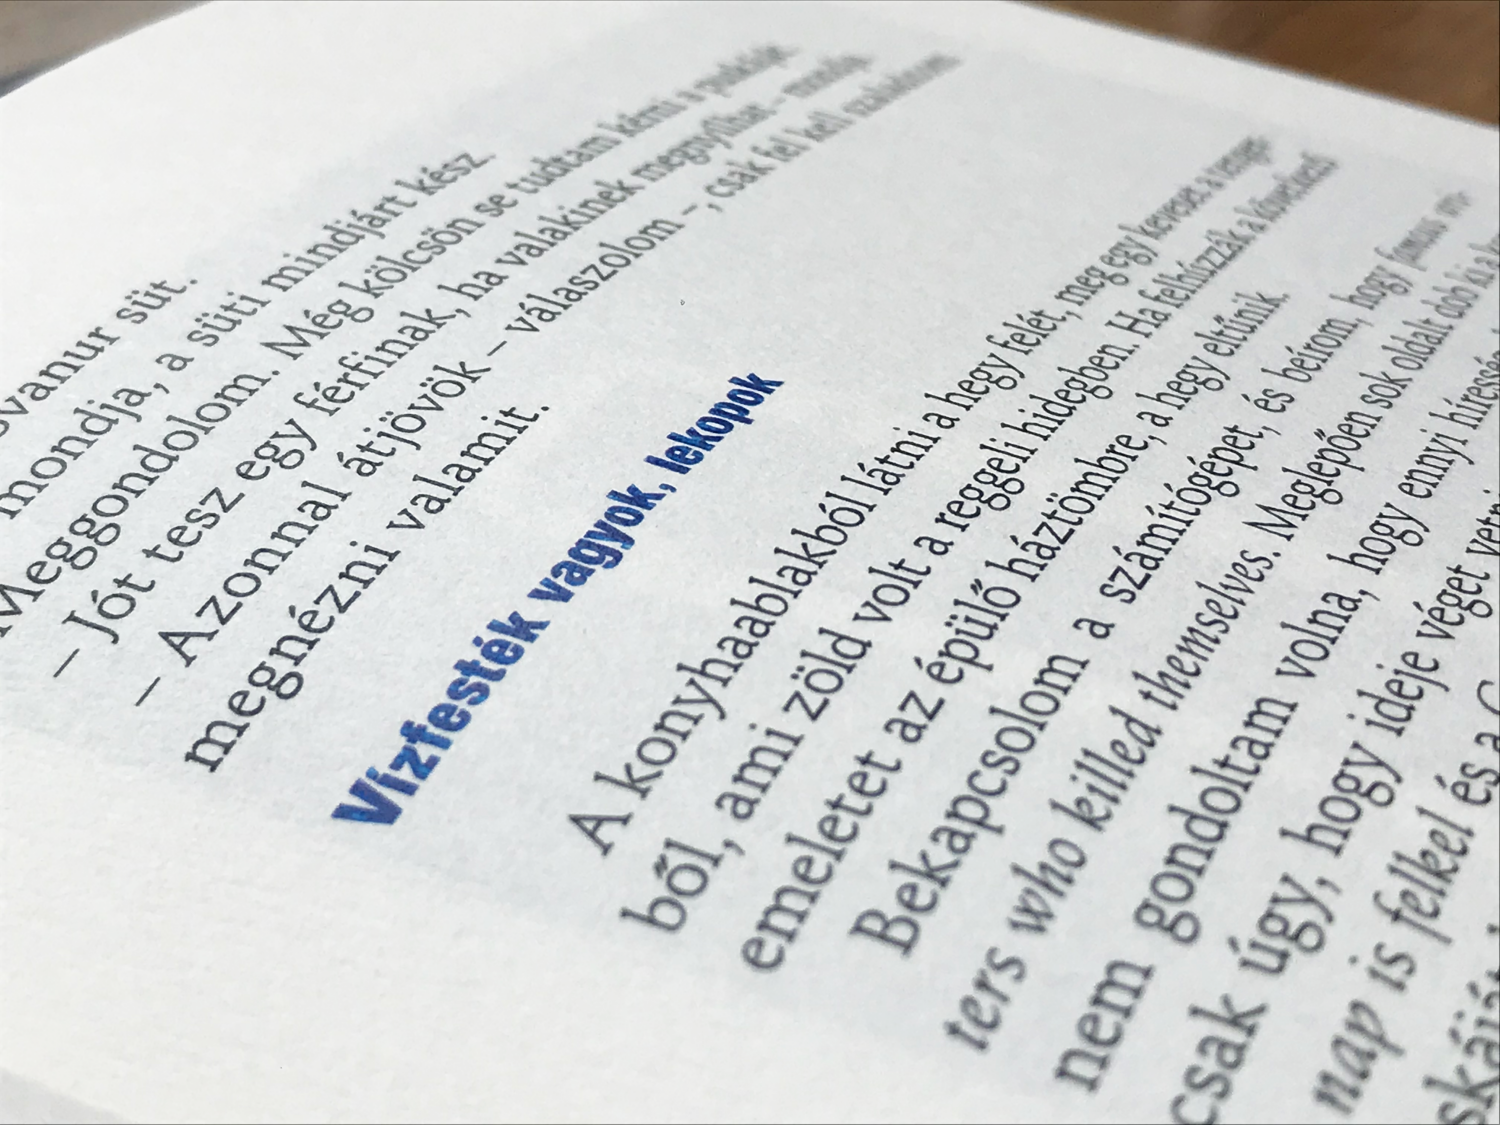 süt.
mondja, a süti mindjárt kész.
Meggondolom. Még kölcsön se tudtam kérni a
– Jót tesz egy férfinak, ha valakinek megnyílhat – mondja.
– Azonnal átjövök – válaszolom –, csak fel kell
megnézni valamit.
Vízfesték vagyok, lekopok
A konyhaablakból látni a hegy felét, meg egy keveset a tenger-
ből, ami zöld volt a reggeli hidegben. Ha felhúzzák a következő
emeletet az épülő háztömbre, a hegy eltűnik.
Bekapcsolom a számítógépet, és beírom, hogy famous wri-
ters who killed themselves. Meglepően sok oldalt dob ki a
nem gondoltam volna, hogy ennyi híresség
csak úgy, hogy ideje véget vetni
nap is felkel és a